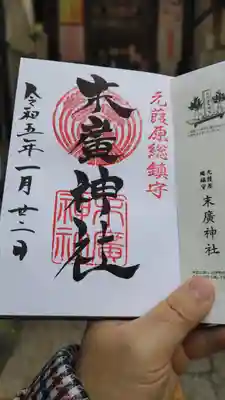 元葭原総鎮守
末廣神社
令和五年一月廿二日
末廣神社
元葭原
総鎮守
末廣神社